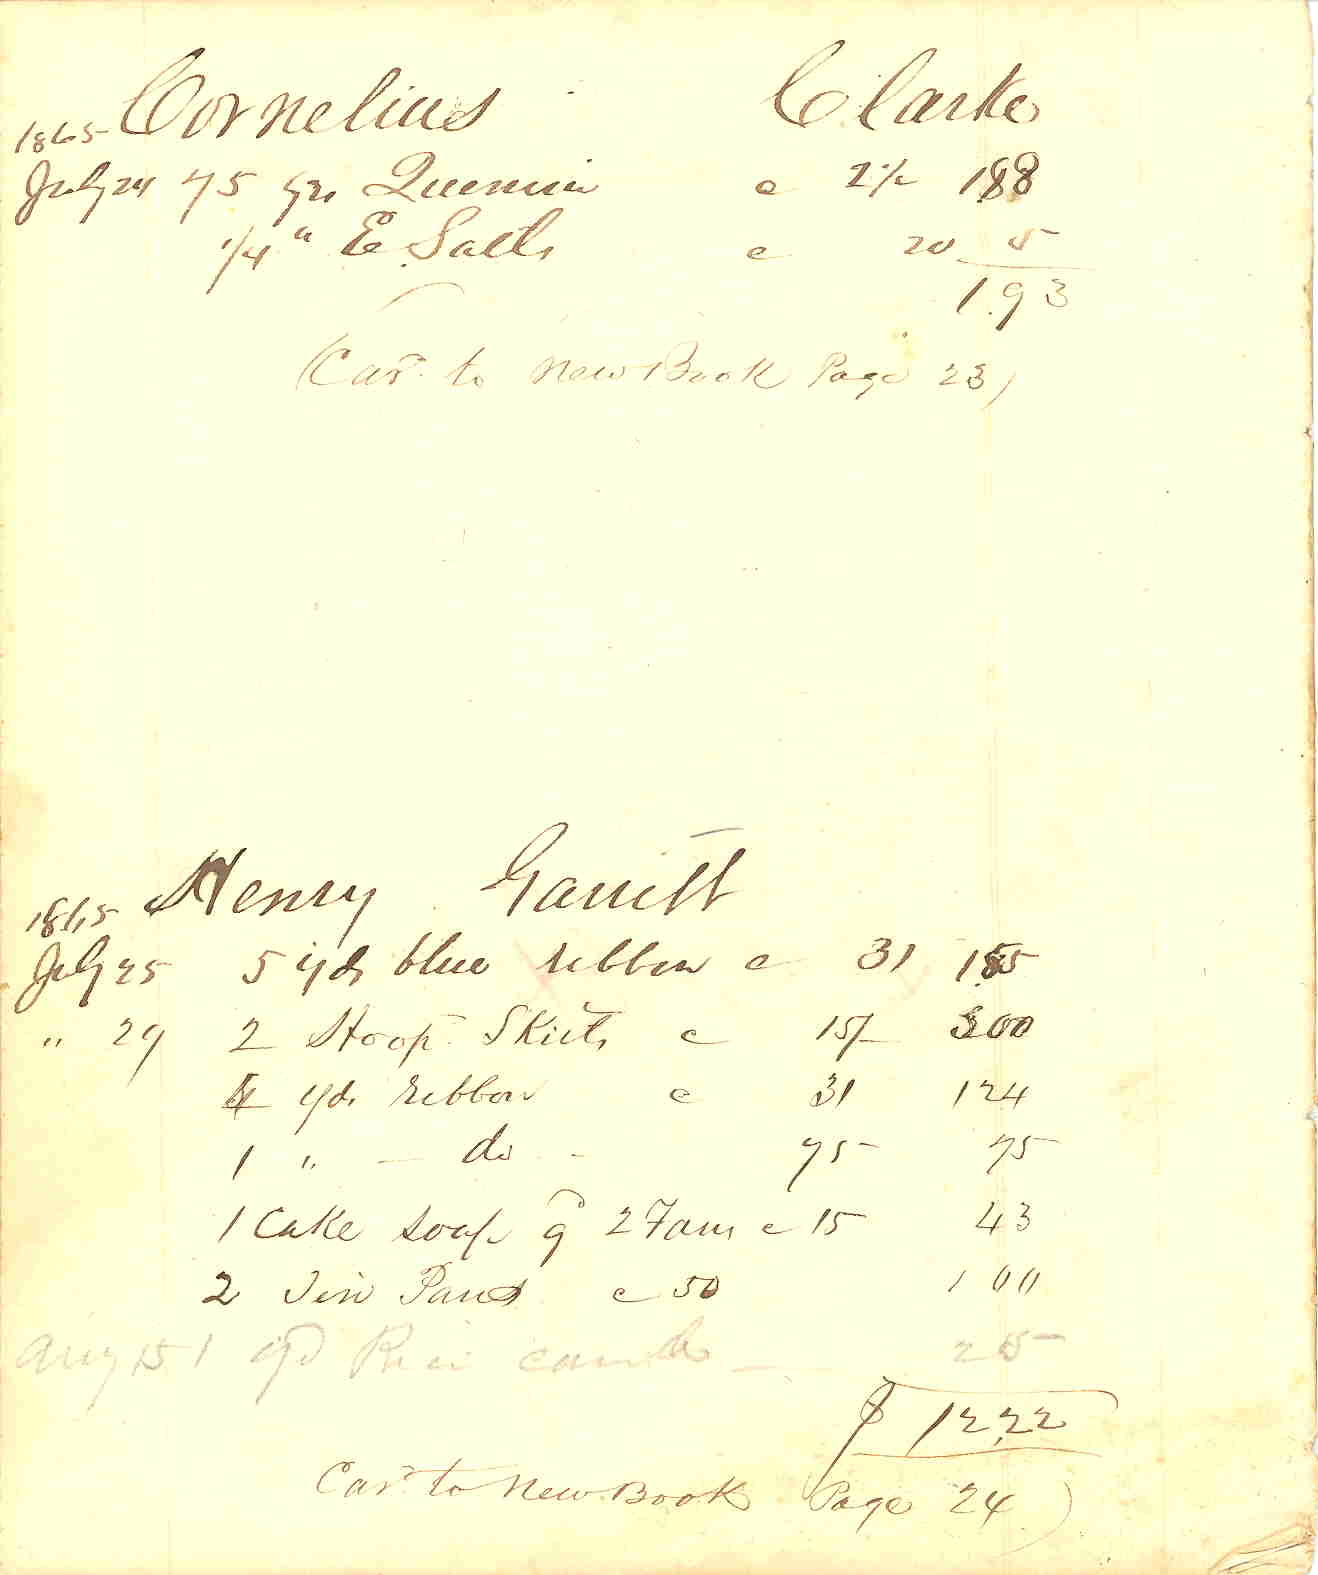 Cornelius Clarke
1865
July 24 75 grs Quennin @ 2½ 188
1/4 " E Salts @ 20 5
1.93
(Car. to New Book Page 23)
Henry Garrett
1865
July 25 5 yds blue ribbon @ 31 155
" 29 2 Hoop Skirts @ 15/- 300
4 yds ribbon @ 31 124
1 " — do - 75 75
1 Cake soap 2 @ 15 43
2 Tin Pans @ 50 100
Aug 15 1 25
$ 12.22
Car. to New Book Page 24)